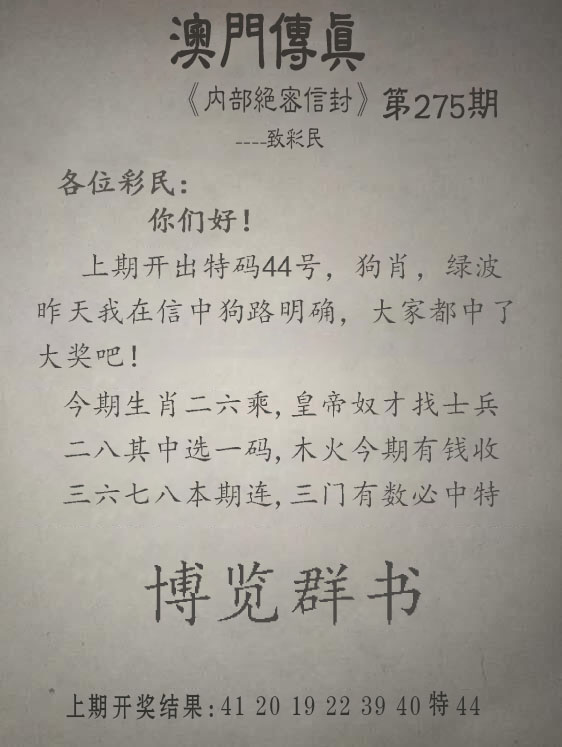 澳門傳眞
《内部絕密信封》第275期
----致彩民
各位彩民：
你们好！
上期开出特码44号，狗肖，绿波
昨天我在信中狗路明确，大家都中了
大奖吧！
今期生肖二六乘,皇帝奴才找士兵
二八其中选一码,木火今期有钱收
三六七八本期连,三门有数必中特
博览群书
上期开奖结果:41 20 19 22 39 40 特 44